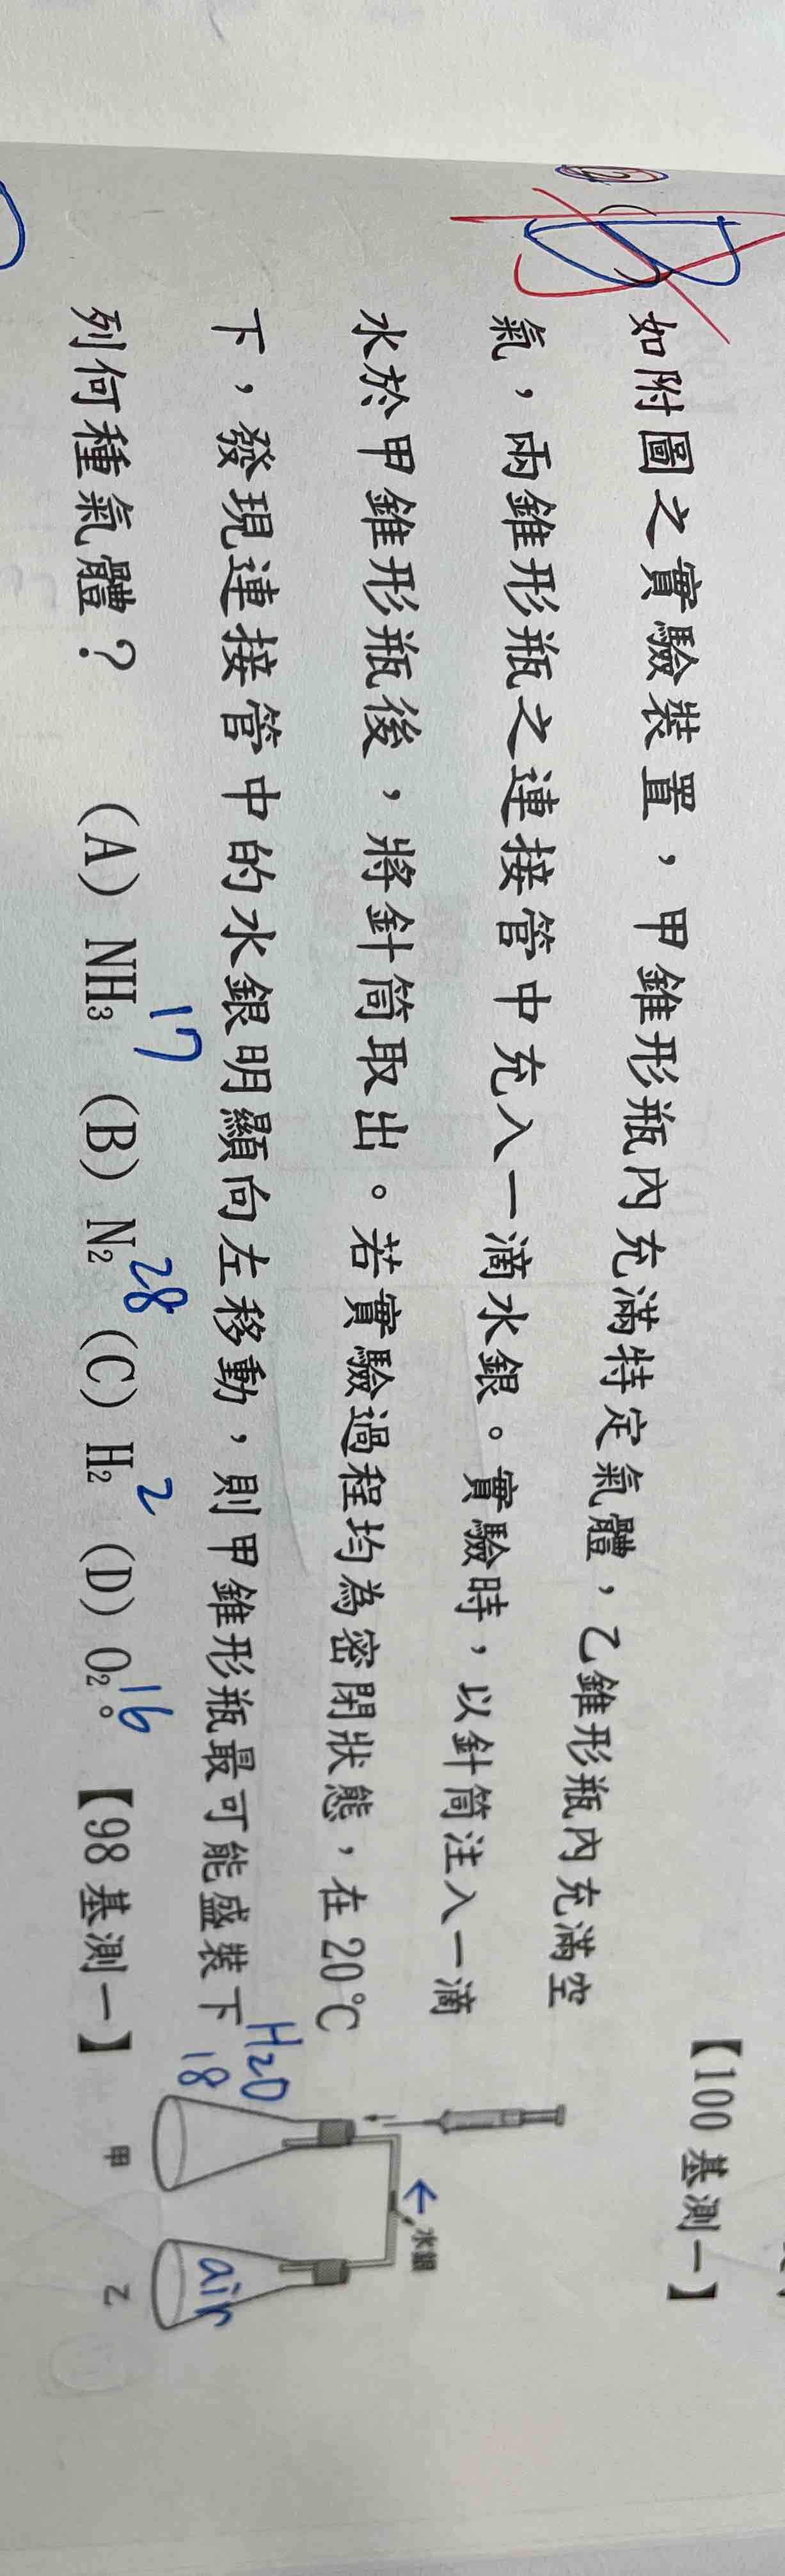 【100 基測一】
如附圖之實驗裝置，甲錐形瓶內充滿特定氣體，乙錐形瓶內充滿空
氣，兩錐形瓶之連接管中充入一滴水銀。實驗時，以針筒注入一滴
水於甲錐形瓶後，將針筒取出。若實驗過程均為密閉狀態，在20℃
下，發現連接管中的水銀明顯向左移動，則甲錐形瓶最可能盛裝下
列何種氣體？ (A) NH₃ (B) N₂ (C) H₂ (D) O₂。【98 基測一】
17
28
2
16
H₂O
18
水銀
air
甲
乙